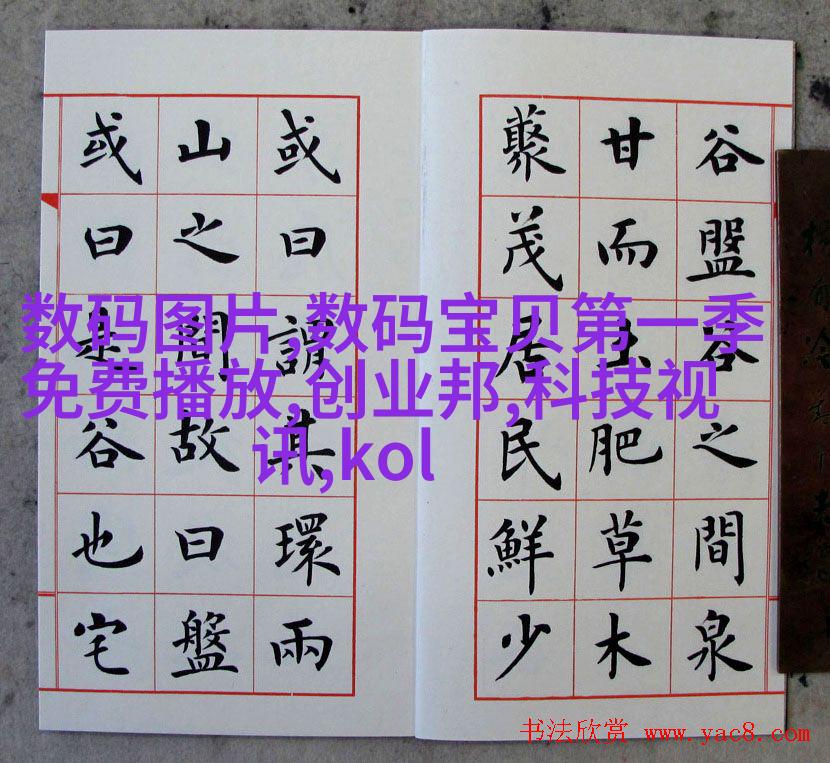 谷盤谷之間泉
甘而土肥草木
藂茂居民鮮少
或曰謂其環兩
山之間故曰盤
或曰是谷也宅
数码图片,数码宝贝第一季
免费播放,创业邦,科技视
讯,kol
书法欣赏 www.yac8.com